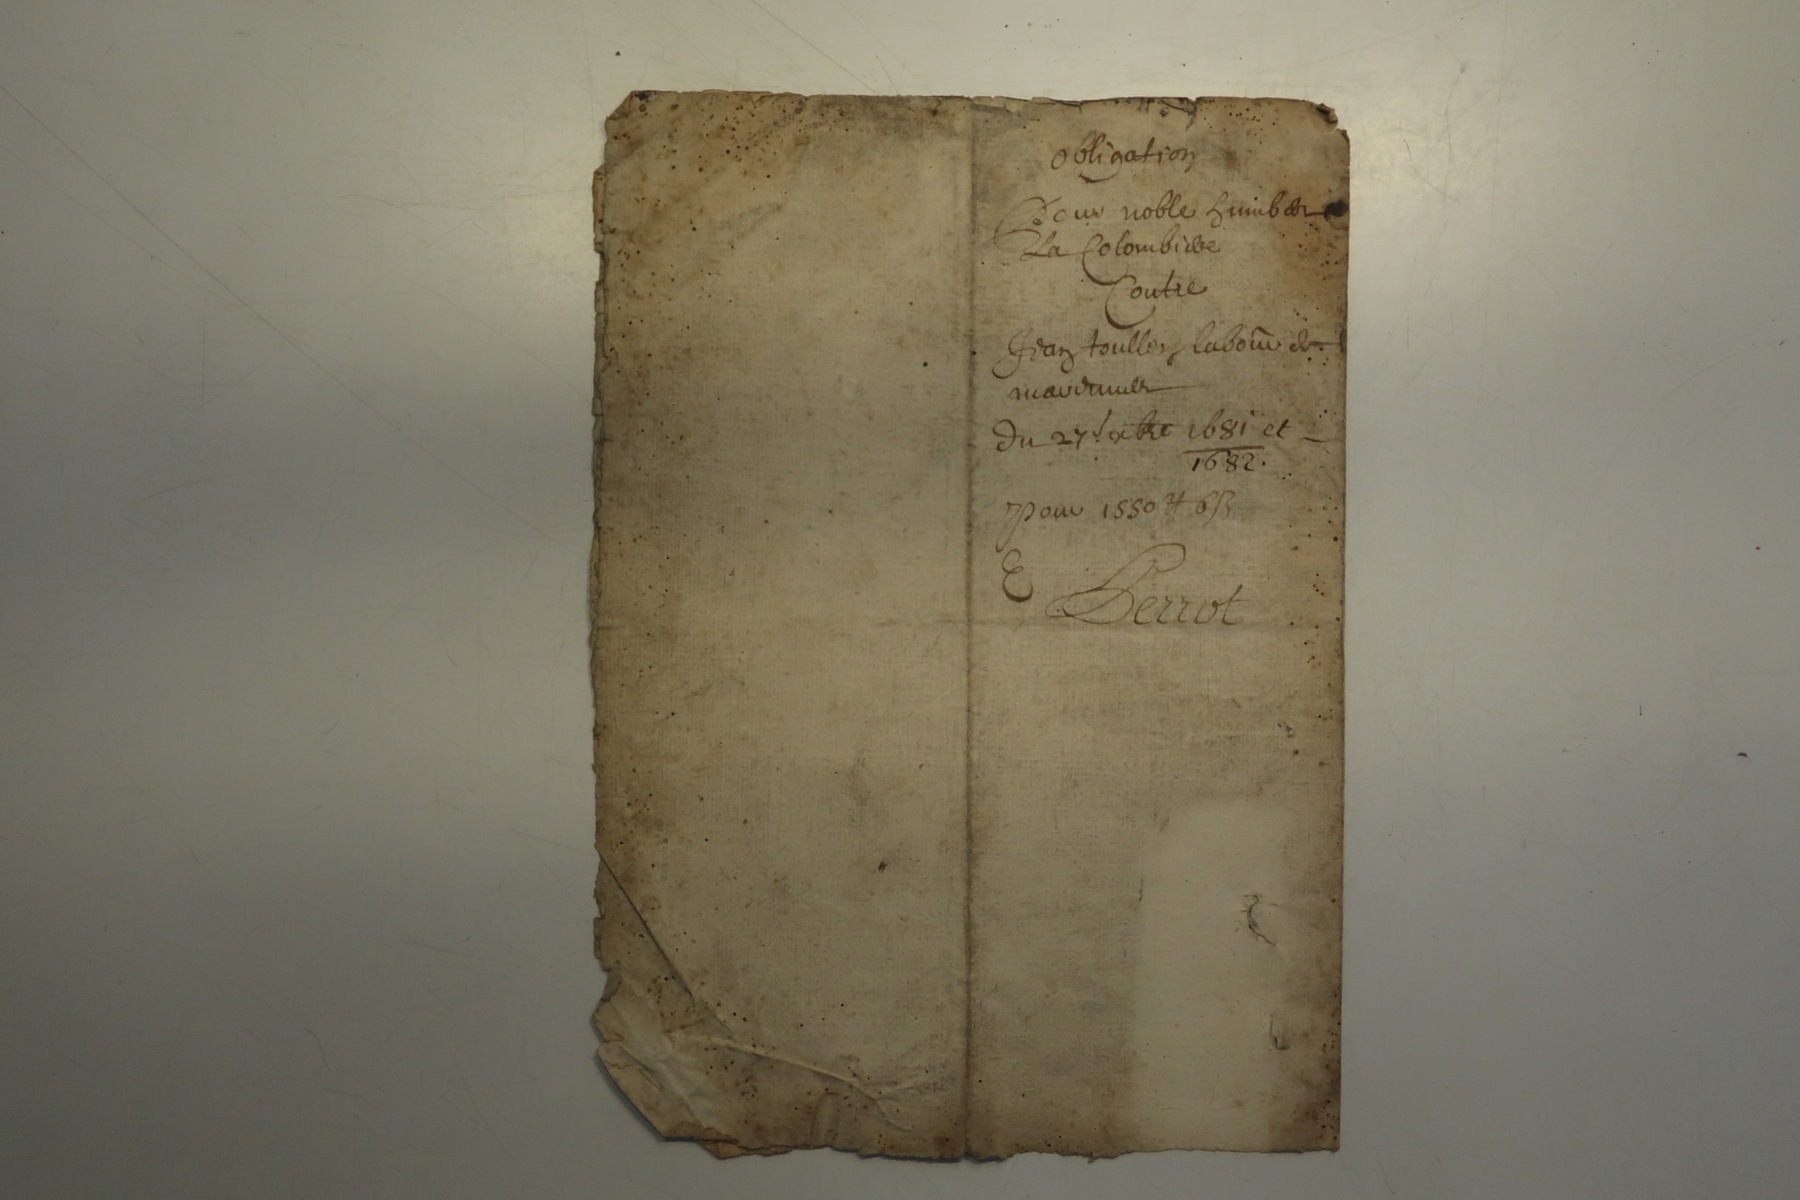 obligation
Pour noble humber
La Colombiere
Contre
Jean toullier labour de
Du 27e xbre 1681 et
1682.
pour 1550 lt 6 s
E Perrot